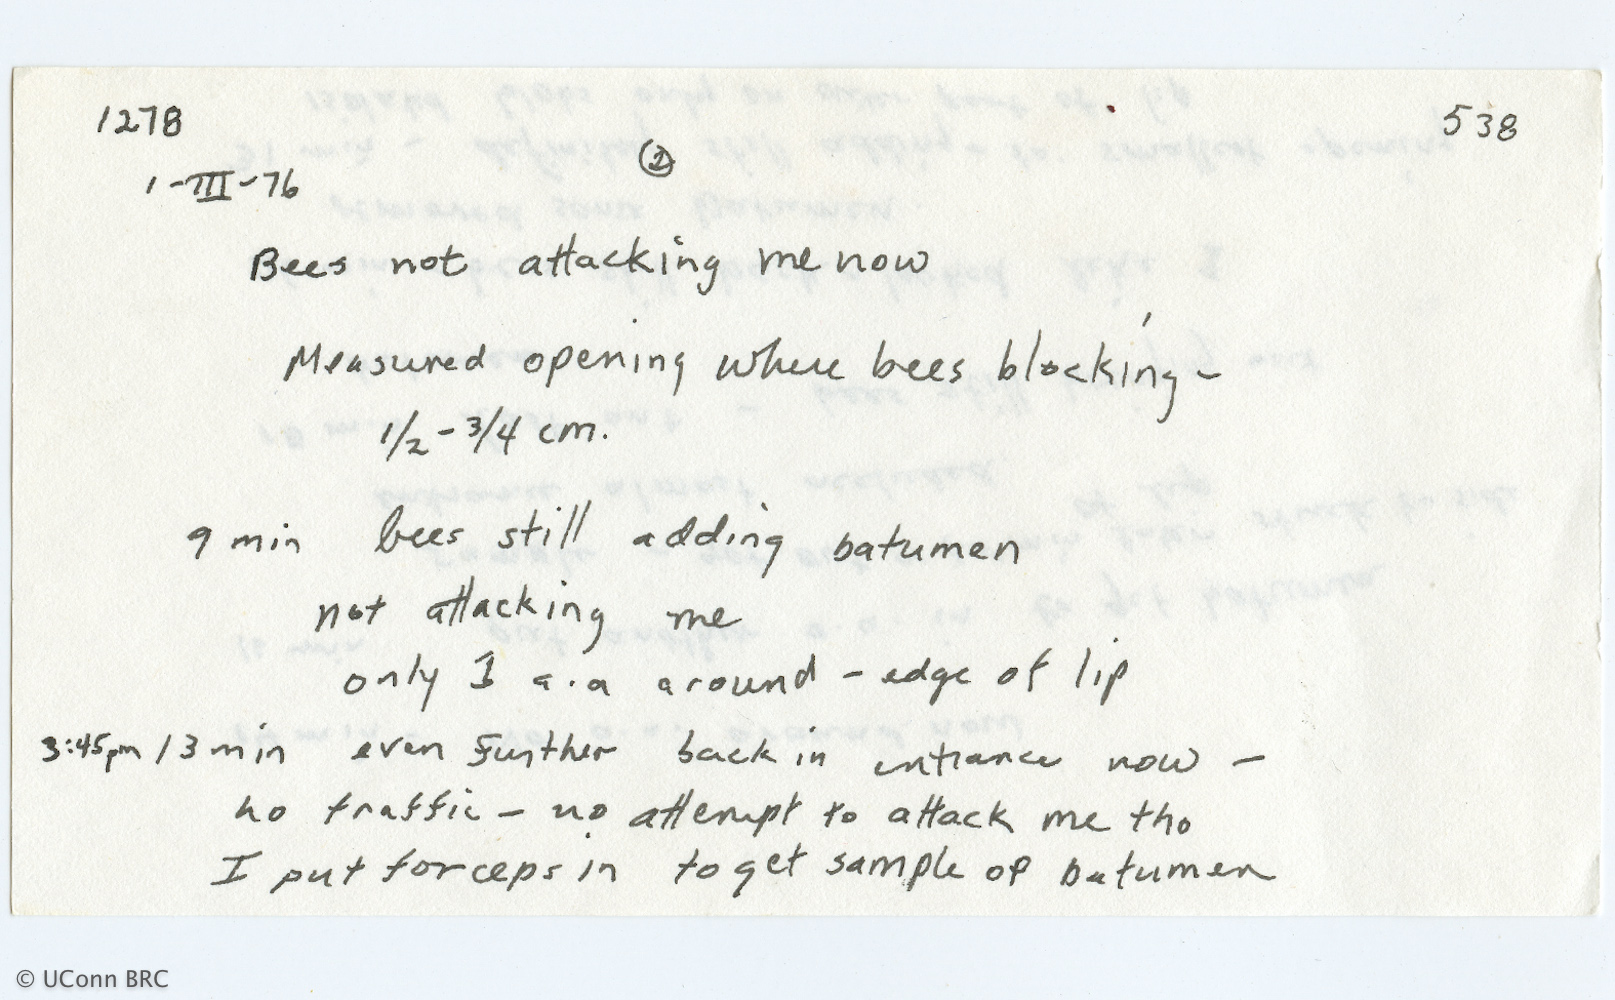 1278
538
②
1-III-76
Bees not attacking me now
Measured opening where bees blocking -
1/2 - 3/4 cm.
9 min bees still adding batumen
not attacking me
only 1 a.a around - edge of lip
3:45pm 13 min even further back in entrance now -
no traffic - no attempt to attack me tho
I put forceps in to get sample of batumen
© UConn BRC